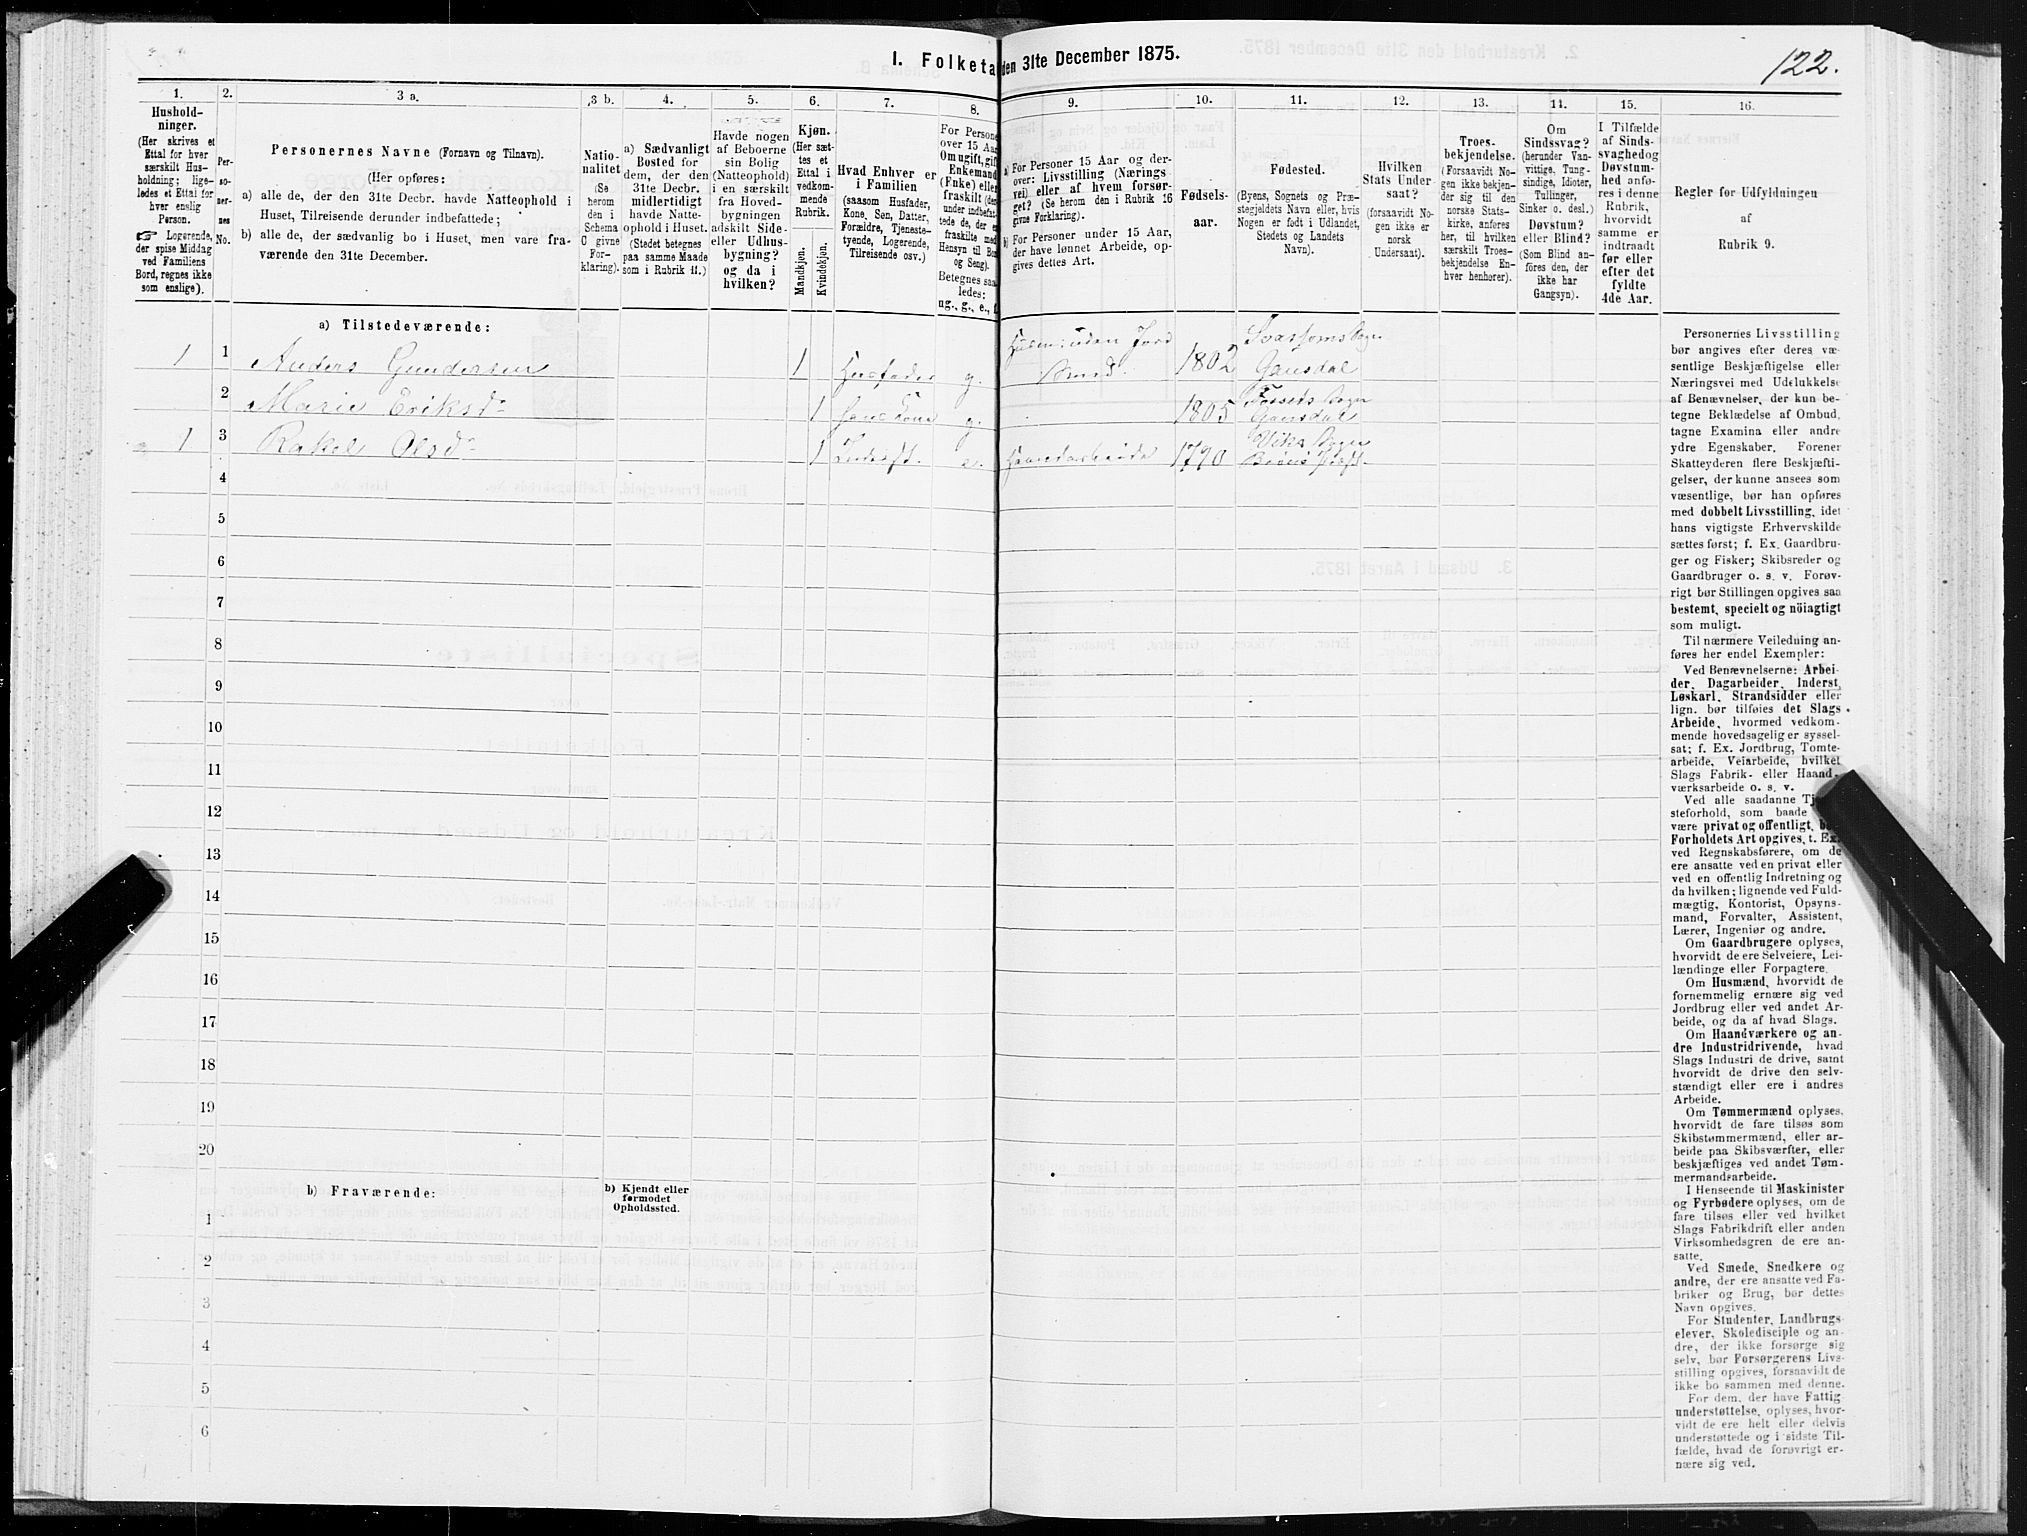 I. Folketa den 31te December 1875.
122.
1.
Hushold-
ninger.
(Her skrives et
Ettal for hver
særskilt Hus-
holdning; lige-
ledes et Ettal for
hver enslig
Person.
Logerende,
der spise Middag
ved Familiens
Bord, regnes ikke
som enslige).
2.
Per-
so-
ner-
nes
No.
3 a.
Personernes Navne (Fornavn og Tilnavn).
(Her opføres:
a) alle de, der den 31te Decbr. havde Natteophold i
Huset, Tilreisende derunder indbefattede;
b) alle de, der sædvanlig bo i Huset, men vare fra-
værende den 31te December.
3 b.
Natio-
nalitet
(Se
herom
den i
Schema
C givne
For-
klaring).
4.
a) Sædvanligt
Bosted for
dem, der den
31te Decbr.
midlertidigt
havde Natte-
ophold i Huset.
(Stedet betegnes
paa samme Maade
som i Rubrik 11.)
5.
Havde nogen
af Beboerne
sin Bolig
(Natteophold)
i en særskilt
fra Hoved-
bygningen
adskilt Side-
eller Udhus-
bygning?
og da i
hvilken?
6.
Kjøn.
(Her sæt-
tes et
Ettal i
vedkom-
mende
Rubrik.
Mandkjøn.
Kvindekjøn.
7.
Hvad Enhver er
i Familien
(saasom Husfader,
Kone, Søn, Datter,
Forældre, Tjeneste-
tyende, Logerende,
Tilreisende osv.)
8.
For Persone
over 15 Aar
Om ugift, gift
Enkemand
(Enke) eller
fraskilt (der-
under indbefat-
tede de, der e
fraskilte med
Hensyn til Bo
og Seng).
Betegnes saa
ledes:
ug., g., e., f.
9.
a) For Personer 15 Aar og der-
over: Livsstilling (Nærings
vei) eller af hvem forsør-
get? (Se herom den i Rubrik 16
givne Forklaring).
b) For Personer under 15 Aar,
der have lønnet Arbeide, op-
gives dettes Art.
10.
Fødsels-
aar.
11.
Fødested.
(Byens, Sognets og Præ-
stegjeldets Navn eller, hvis
Nogen er født i Udlandet,
Stedets og Landets
Navn).
12.
Hvilken
Stats Under-
saat?
(forsaavidt No-
gen ikke er
norsk
Undersaat).
13.
Troes-
bekjendelse.
(Forsaavidt No-
gen ikke bekjen-
der sig til den
norske Stats-
kirke, anføres
her, til hvilken
særskilt Troes-
bekjendelse En-
hver henhører).
14.
Om
Sindssvag?
(herunder Van-
vittige, Tung-
sindige, Idioter,
Tullinger,
Sinker o. desl.)
Døvstum?
eller Blind?
(Som Blind an-
føres den, der
ikke har
Gangsyn).
15.
I Tilfælde
af Sinds-
svaghedog
Døvstum-
hed anfø-
res i denne
Rubrik,
hvorvidt
samme er
indtraadt
før eller
efter det
fyldte
4de Aar.
16.
Regler for Udfyldningen
af
Rubrik 9.
a) Tilstedeværende:
1 1 Anders Gundersen 1 Husfader g. Husm: uden Jord Smed. 1802 Sogn Gausdal
2 Marie Eriksdr 1 Hans Kone g. 1805 Sogn Gausdal
1 3 Rakel Olsdr 1 Inderst. e. Haandarbeide 1790 Sogn
4
5
6
7
8
9
10
11
12
13
14
15
16
17
18
19
20
b) Fraværende:
b) Kjendt eller
formodet
Opholdssted.
1
2
3
4
5
6
Personernes Livsstilling
bør angives efter deres væ-
sentlige Beskjæftigelse eller
Næringsvei med Udelukkelse
af Benævnelser, der kun be-
tegne Beklædelse af Ombud,
tagne Examina eller andre
ydre Egenskaber. Forener
Skatteyderen flere Beskjæfti-
gelser, der kunne ansees som
væsentlige, bør han opføres
med dobbelt Livsstilling, idet
hans vigtigste Erhvervskilde
sættes først; f. Ex. Gaardbru-
ger og Fisker; Skibsreder og
Gaardbruger o. s. v. Forøv-
rigt bør Stillingen opgives saa
bestemt, specielt og nöiagtigt
som muligt.
Til nærmere Veiledning an-
føres her endel Exempler:
Ved Benævnelserne: Arbei-
der, Dagarbeider, Inderst,
Løskarl, Strandsidder eller
lign. bør tilføies det Slags
Arbeide, hvormed vedkom-
mende hovedsagelig er syssel-
sat; f. Ex. Jordbrug, Tomte-
arbeide, Veiarbeide, hvilket
Slags Fabrik- eller Haand-
værksarbeide o. s. v.
Ved alle saadanne Tj
steforhold, som baade
være privat og offentligt, bør
Forholdets Art opgives, t. Ex.
ved Regnskabsførere, om de
ere ansatte ved en privat eller
ved en offentlig Indretning og
da hvilken; lignende ved Fuld-
mægtig, Kontorist, Opsyns-
mand, Forvalter, Assistent,
Lærer, Ingeniør og andre.
Om Gaardbrugere oplyses,
hvorvidt de ere Selveiere, Lei-
lændinge eller Forpagtere.
Om Husmænd, hvorvidt de
fornemmelig ernære sig ved
Jordbrug eller ved andet Ar-
beide, og da af hvad Slags.
Om Haandværkere og an-
dre Industridrivende, hvad
Slags Industri de drive, samt
hvorvidt de drive den selv-
stændigt eller ere i andres
Arbeide.
Om Tømmermænd oplyses,
hvorvidt de fare tilsøs som
Skibstømmermænd, eller ar-
beide paa Skibsværfter, eller
beskjæftiges ved andet Tøm-
mermandsarbeide.
I Henseende til Maskinister
og Fyrbødere oplyses, om de
fare tilsøs eller ved hvilket
Slags Fabrikdrift eller anden
Virksomhedsgren de ere an-
satte.
Ved Smede, Snedkere og
andre, der ere ansatte ved Fa-
briker og Brug, bør dettes
Navn opgives.
For Studenter, Landbrugs-
elever, Skoledisciple og an-
dre, der ikke forsørge sig
selv, bør Forsørgerens Livs-
stilling opgives, forsaavidt de
ikke bo sammen med denne.
For dem, der have Fattig-
understøttelse, oplyses, hvor-
vidt de ere helt eller delvis
understøttede og i sidste Til-
fælde, hvad de forøvrigt er-
nære sig ved.